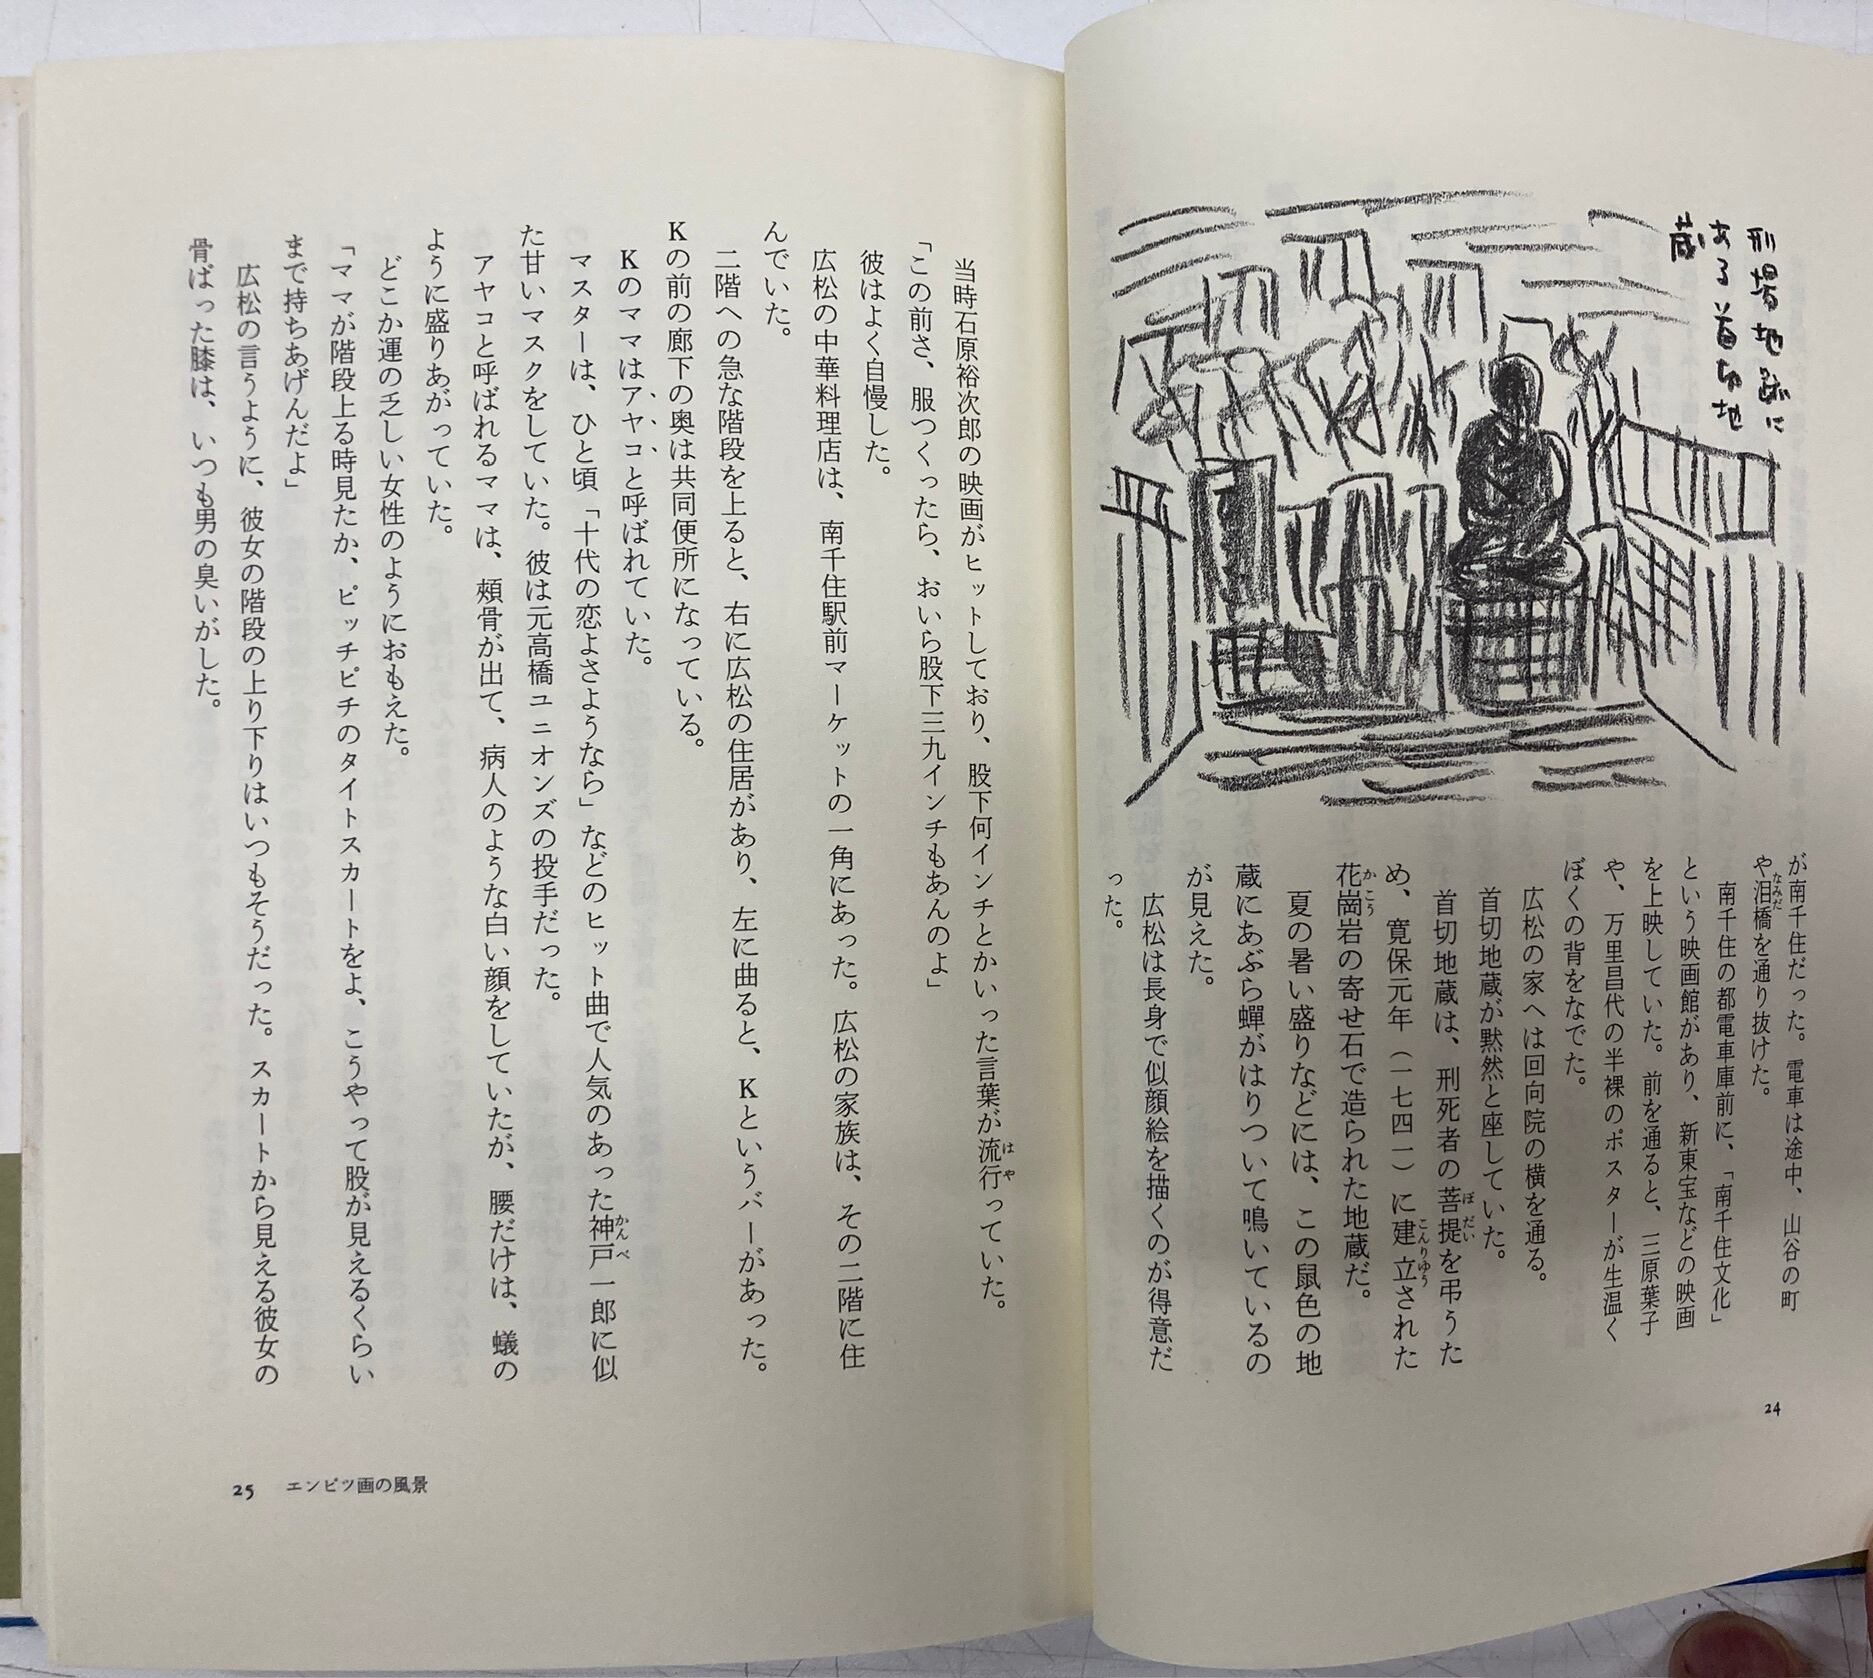 刑場地跡に
ある首切地
蔵
が南千住だった。電車は途中、山谷の町
や泪橋を通り抜けた。
なみだ
南千住の都電車庫前に、「南千住文化」
という映画館があり、新東宝などの映画
を上映していた。前を通ると、三原葉子
や、万里昌代の半裸のポスターが生温く
ぼくの背をなでた。
広松の家へは回向院の横を通る。
首切地蔵が黙然と座していた。
首切地蔵は、刑死者の菩提を弔うた
ぼだい
め、寛保元年(一七四一)に建立された
こんりゅう
花崗岩の寄せ石で造られた地蔵だ。
かこう
夏の暑い盛りなどには、この鼠色の地
蔵にあぶら蟬がはりついて鳴いているの
が見えた。
広松は長身で似顔絵を描くのが得意だ
った。
24
当時石原裕次郎の映画がヒットしており、股下何インチとかいった言葉が流行っていた。
はや
「この前さ、服つくったら、おいら股下三九インチもあんのよ」
彼はよく自慢した。
広松の中華料理店は、南千住駅前マーケットの一角にあった。広松の家族は、その二階に住
んでいた。
二階への急な階段を上ると、右に広松の住居があり、左に曲ると、Kというバーがあった。
Kの前の廊下の奥は共同便所になっている。
Kのママはアヤコと呼ばれていた。
マスターは、ひと頃「十代の恋よさようなら」などのヒット曲で人気のあった神戸一郎に似
かんべ
た甘いマスクをしていた。彼は元高橋ユニオンズの投手だった。
アヤコと呼ばれるママは、頰骨が出て、病人のような白い顔をしていたが、腰だけは、蟻の
ように盛りあがっていた。
どこか運の乏しい女性のようにおもえた。
「ママが階段上る時見たか、ピッチピチのタイトスカートをよ、こうやって股が見えるくらい
まで持ちあげんだよ」
広松の言うように、彼女の階段の上り下りはいつもそうだった。スカートから見える彼女の
骨ばった膝は、いつも男の臭いがした。
25 エンピツ画の風景